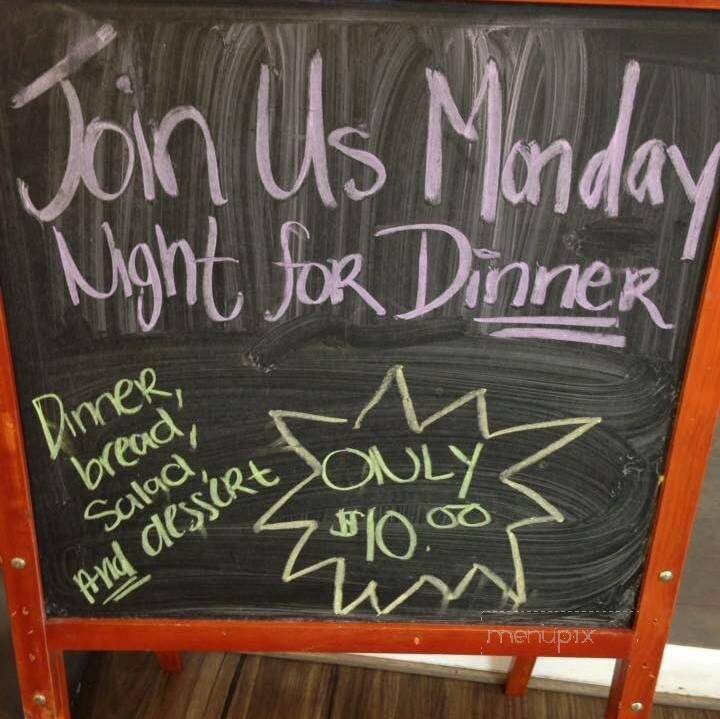 Join Us Monday
Night for Dinner
Dinner,
bread,
Salad,
And dessert
ONLY
$10.00
menupix